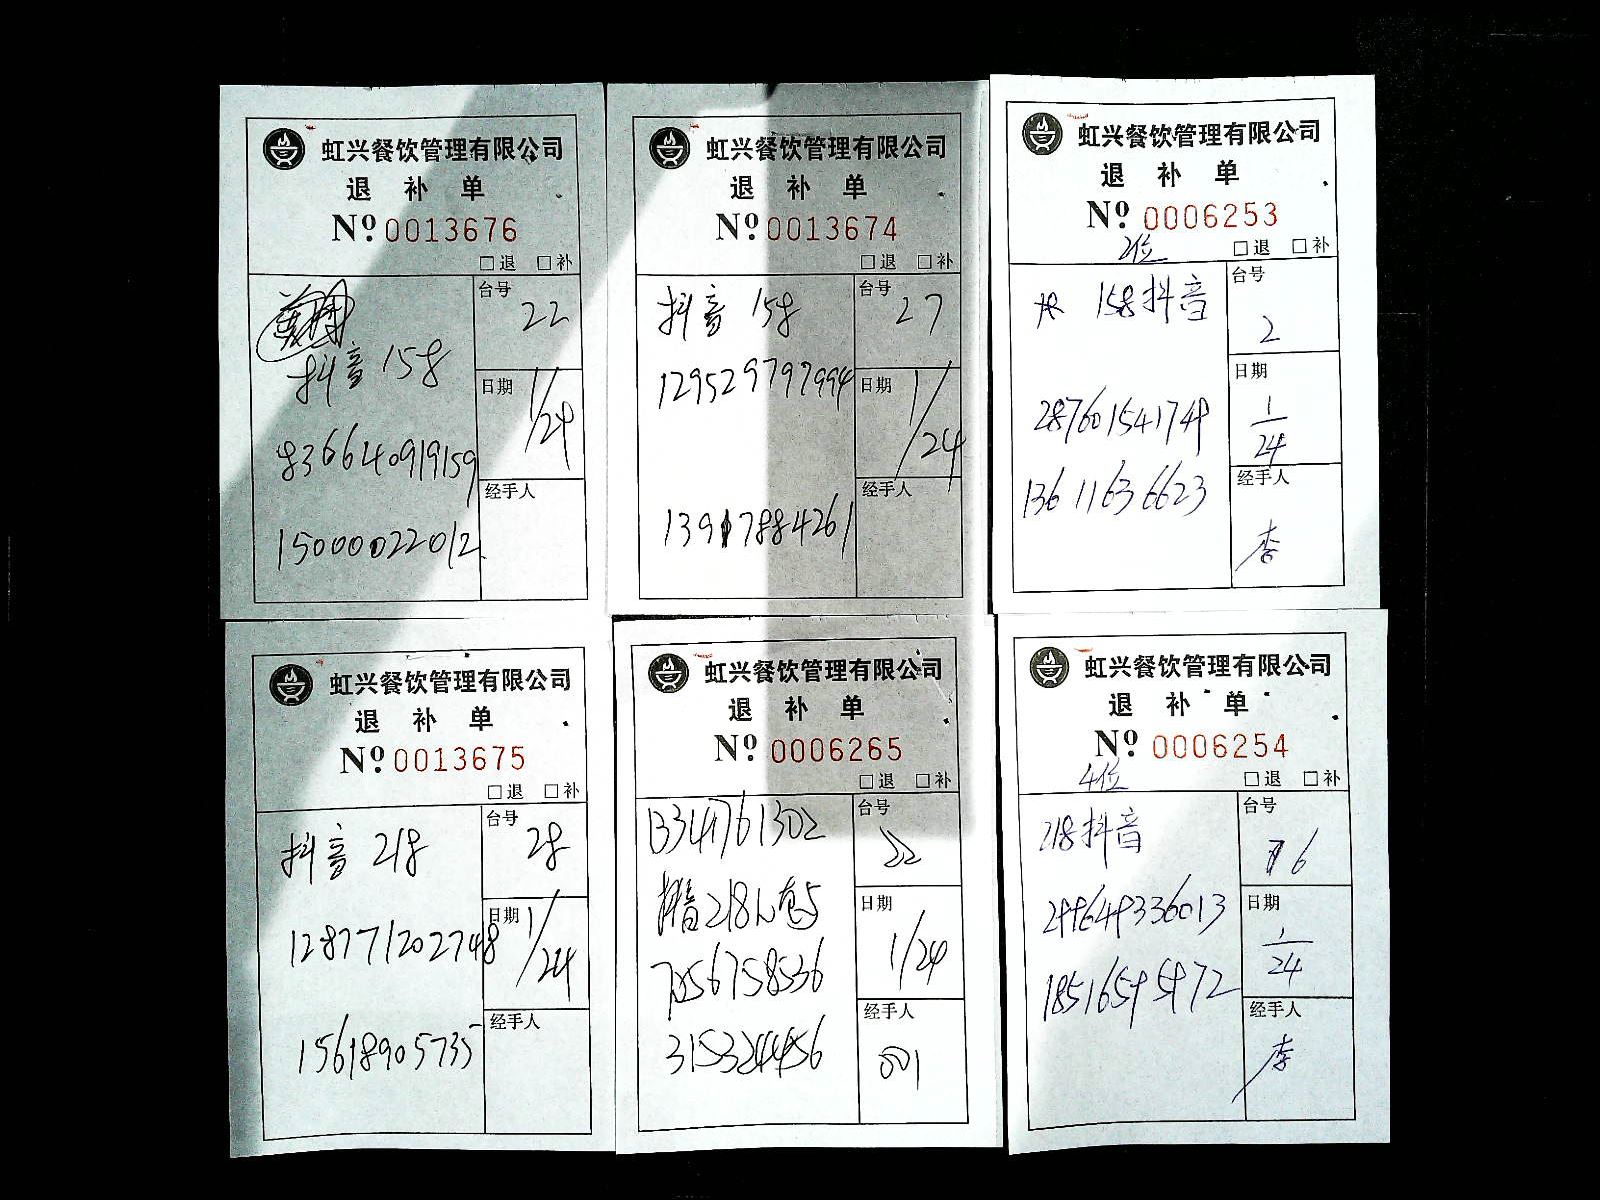 虹兴餐饮管理有限公司
退 补 单
Nº 0013676
□退 □补
台号
22
抖音 158
日期
1/24
836640919159
经手人
15000022012
虹兴餐饮管理有限公司
退 补 单
Nº 0013674
□退 □补
台号
27
抖音 158
129529797994
日期
1/24
经手人
13917884261
虹兴餐饮管理有限公司
退 补 单
Nº 0006253
2位
□退 □补
台号
2
158抖音
日期
1/24
287601541749
经手人
13611636623
李
虹兴餐饮管理有限公司
退 补 单
Nº 0013675
□退 □补
台号
28
抖音 218
日期
1/24
128771202748
经手人
15618905735
虹兴餐饮管理有限公司
退 补 单
Nº 0006265
□退 □补
台号
22
抖音218
日期
1/24
经手人
001
虹兴餐饮管理有限公司
退 补 单
Nº 0006254
4位
□退 □补
台号
6
218抖音
日期
1/24
经手人
李